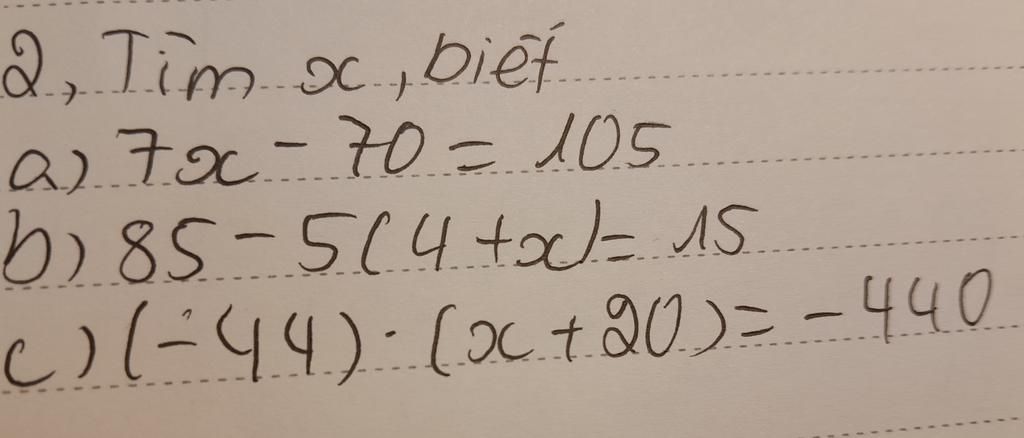 2, Tìm x, biết
a) 7x - 70 = 105
b) 85 - 5(4 + x) = 15
c) (-44) · (x + 20) = -440